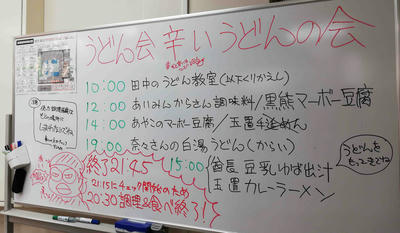 うどん会 辛いうどんの会
10:00 田中のうどん教室(以下くりかえし)
12:00 あいみんからさん調味料/黒熊マーボー豆腐
14:00 あやこのマーボー豆腐/玉置手延めん
19:00 奈々さんの白湯うどん(くからい)
15:00 酋長 豆乳ゆば出汁
玉置 カレーラーメン
うどんを
もってきてね
終了21:45
21:15にチェック開始のため
20:30 調理&食べ終了!